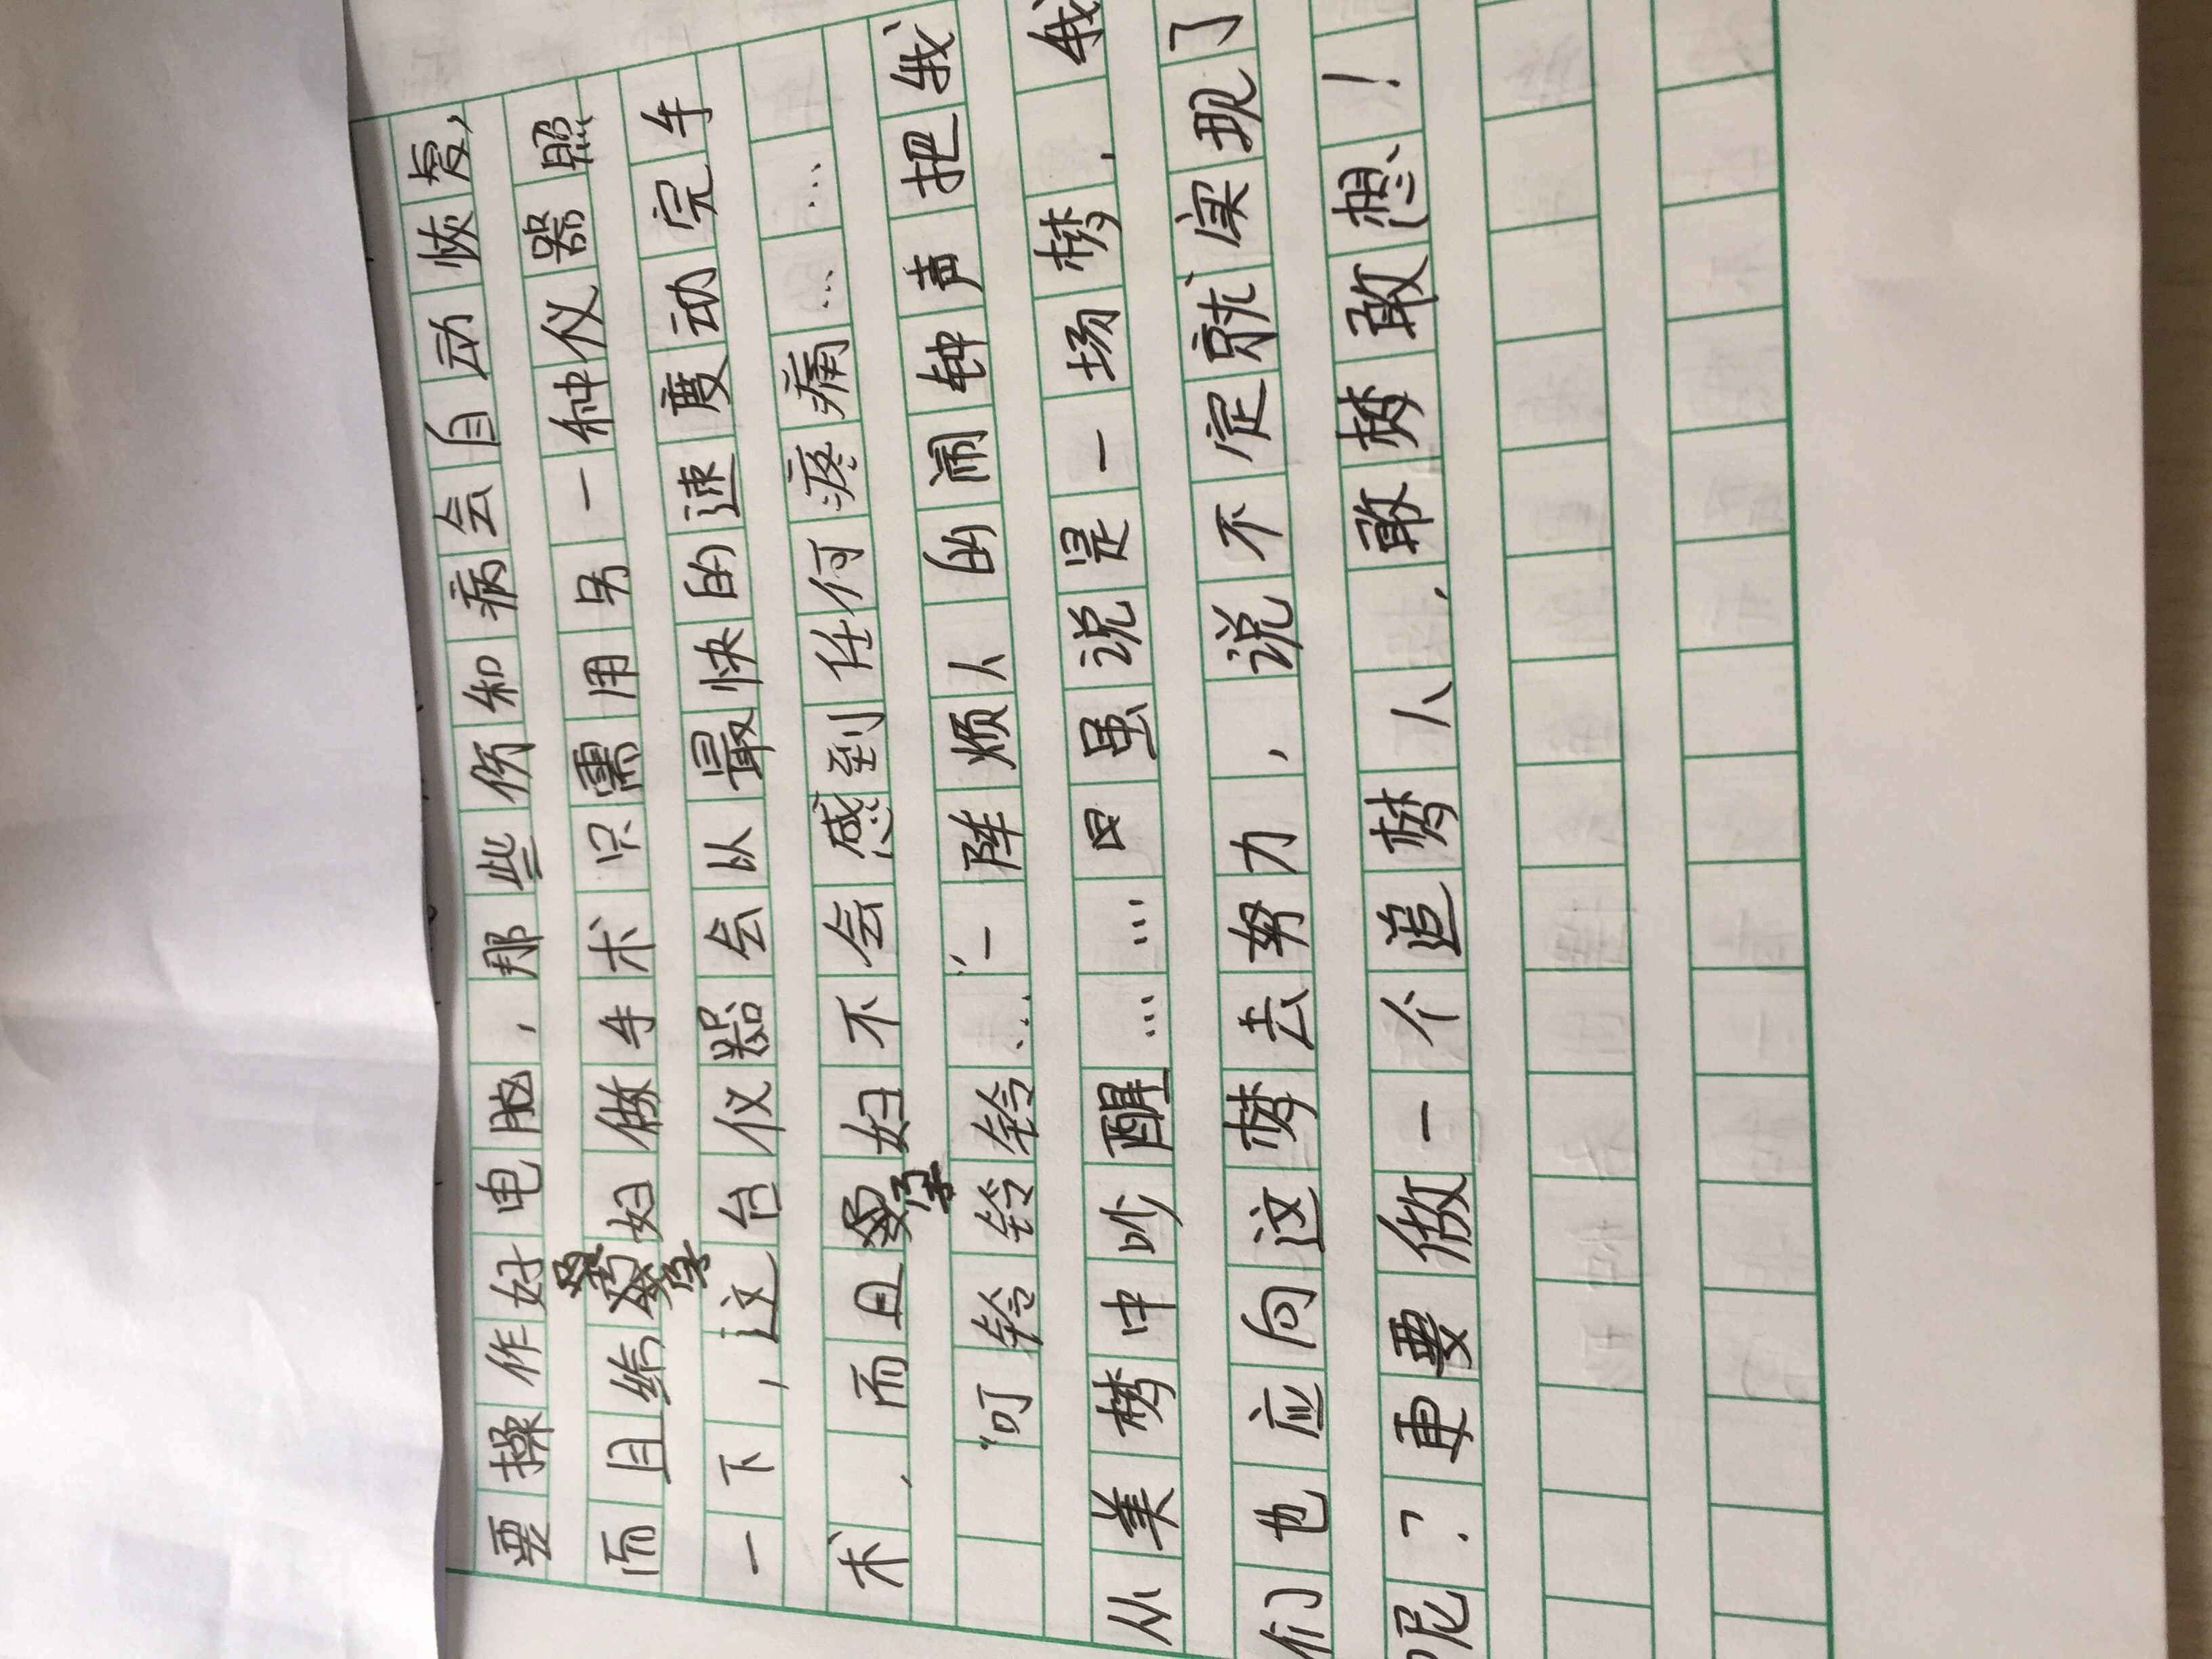 要操作好电脑，那些伤和病会自动恢复，
而且给孕妇做手术只需用另一种仪器照
一下，这台仪器会以最快的速度动完手
术，而且孕妇不会感到任何疼痛……
“叮铃铃铃…”一阵烦人的闹钟声把我
从美梦中吵醒……虽说是一场梦，我
们也应向这梦去努力，说不定就实现了
呢？更要做一个追梦人，敢梦敢想！